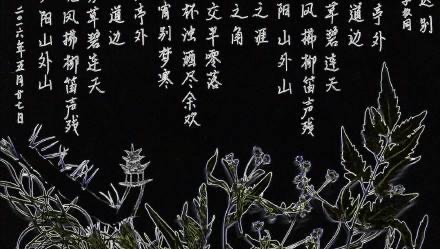 送别
李叔同
亭外
道边
草碧连天
风拂柳笛声残
阳山外山
之涯
之角
交半零落
杯浊酒尽余欢
宵别梦寒
亭外
道边
草碧连天
风拂柳笛声残
阳山外山
二〇一六年五月廿七日